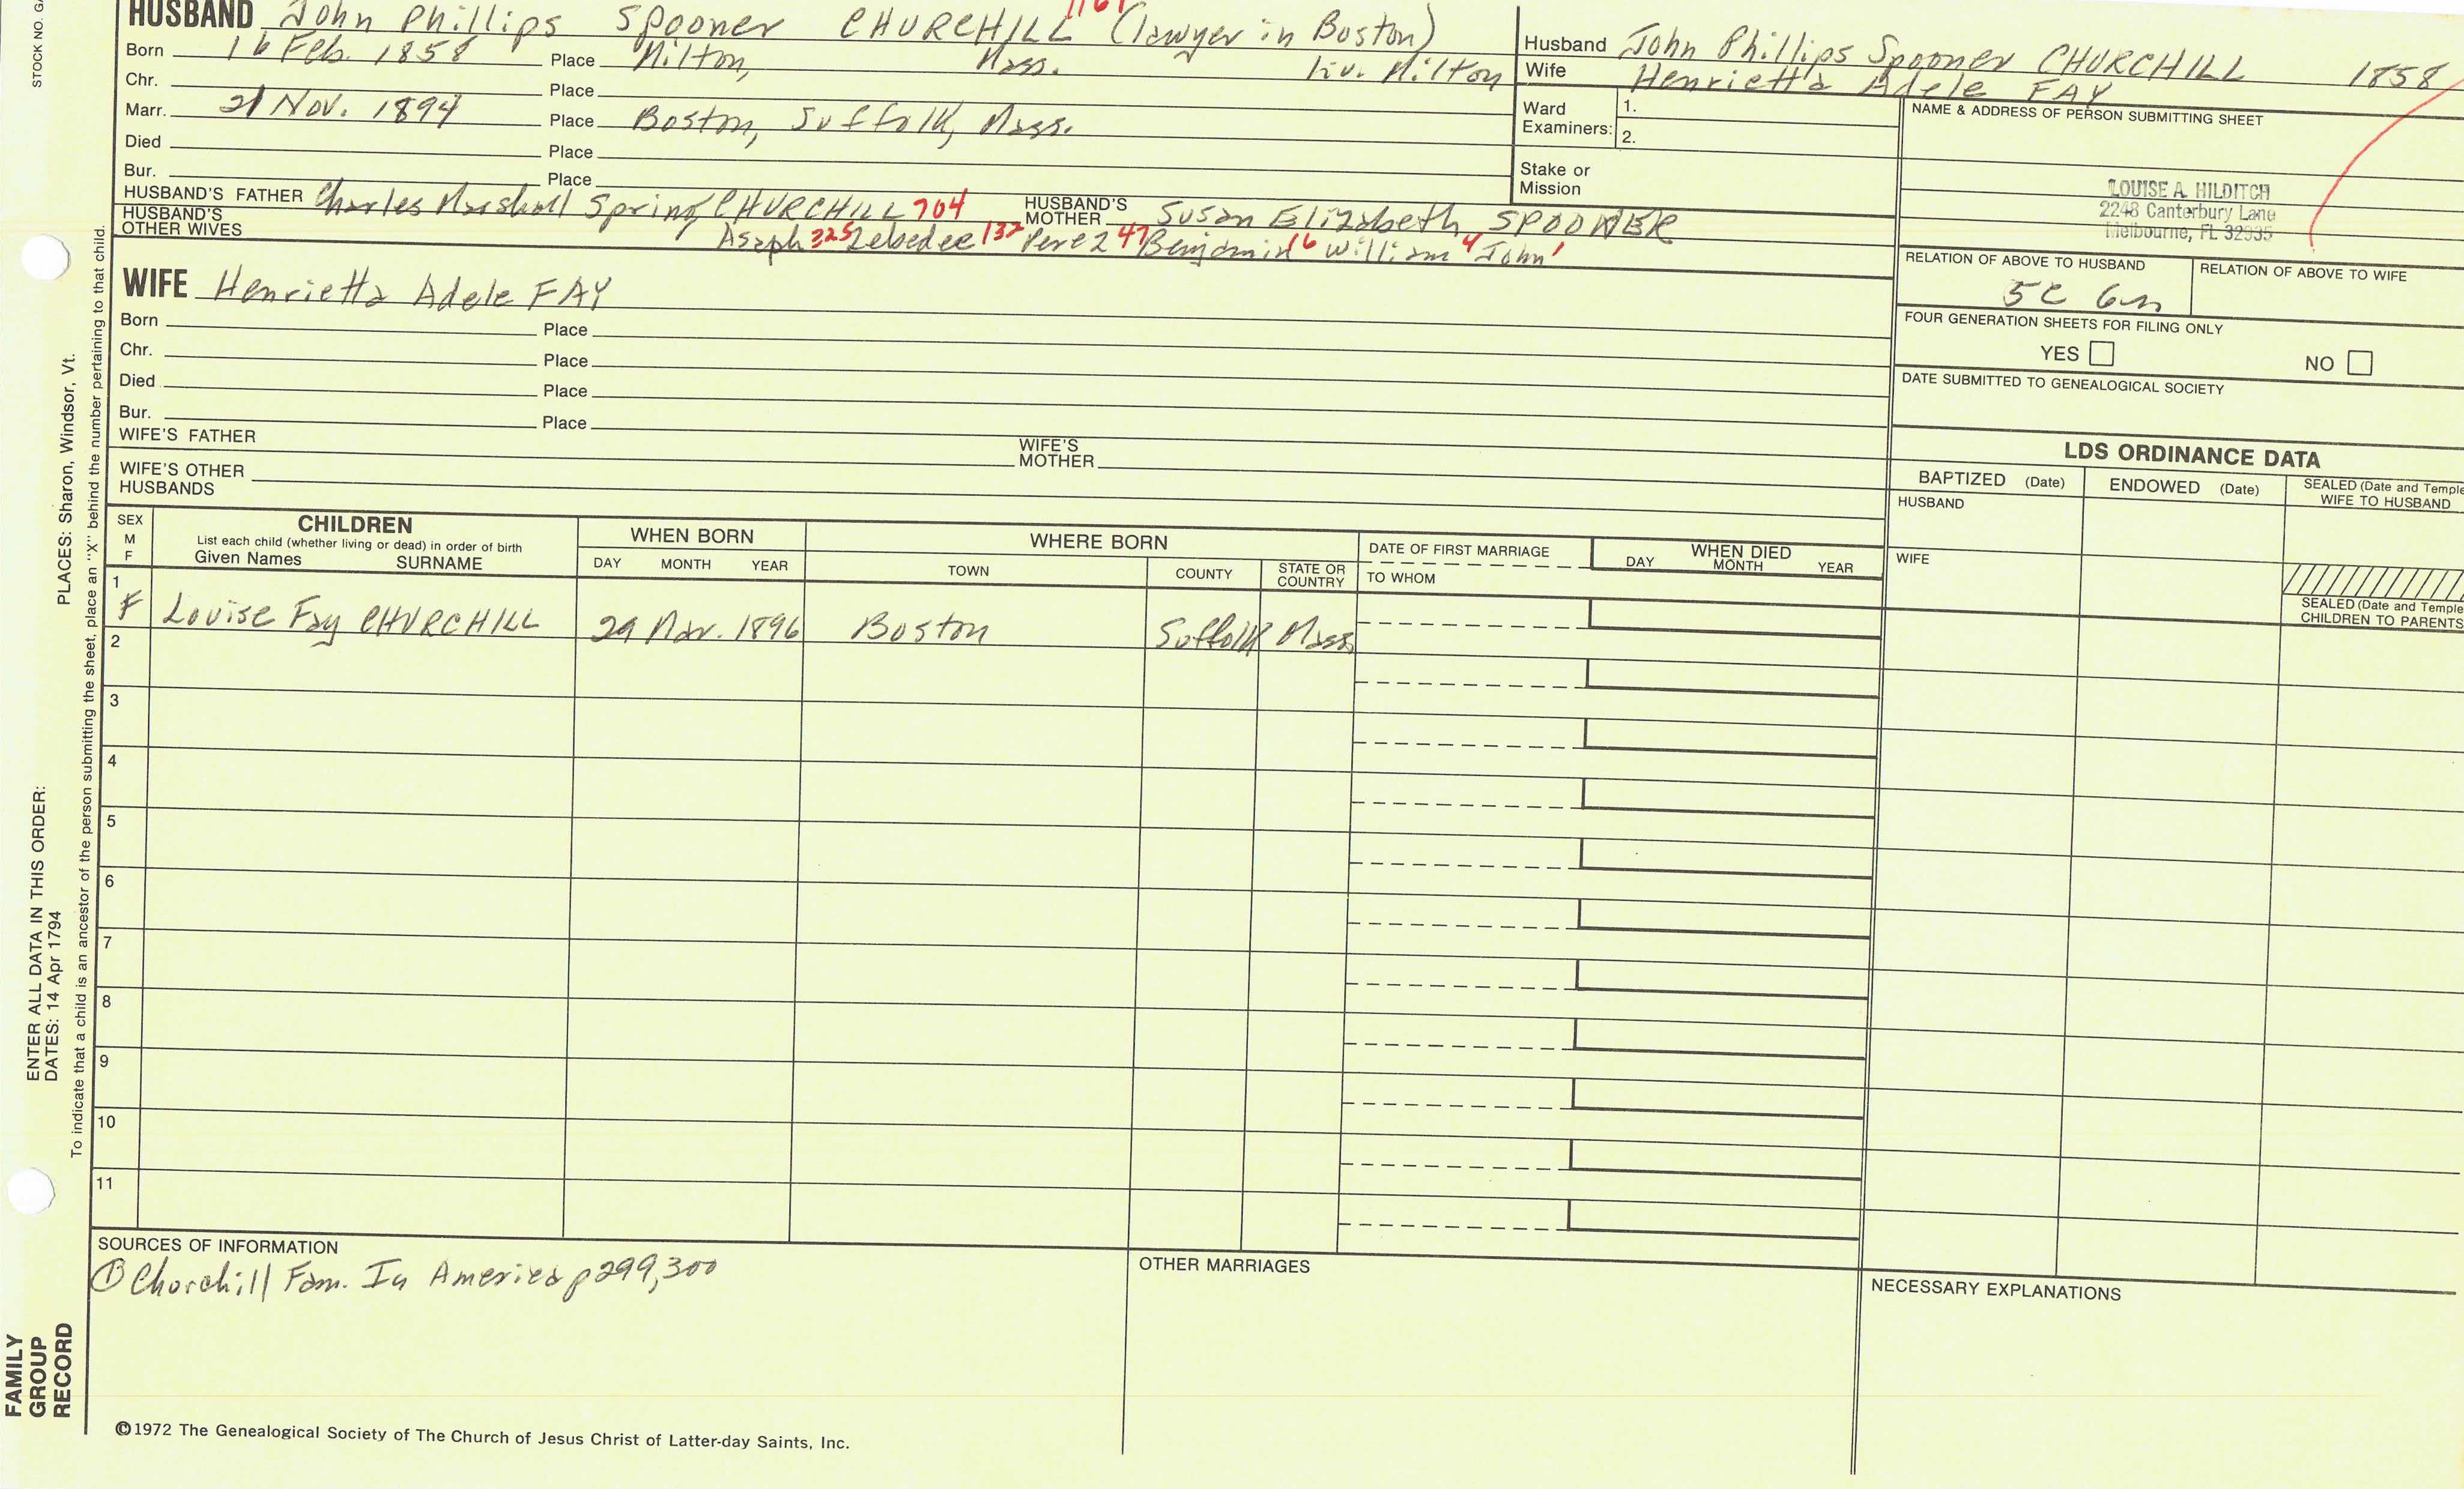 STOCK NO. G
HUSBAND John Phillips Spooner CHURCHILL (lawyer in Boston)
Born 16 Feb. 1858 Place Milton, Mass. liv. Milton
Chr. Place
Marr. 21 Nov. 1894 Place Boston, Suffolk, Mass.
Died Place
Bur. Place
HUSBAND'S FATHER Charles Marshall Spring CHURCHILL 704 HUSBAND'S MOTHER Susan Elizabeth SPOONER
HUSBAND'S OTHER WIVES Asaph 325 Zebedee 132 Perez 47 Benjamin 16 William 4 John 1
Husband John Phillips Spooner CHURCHILL 1858
Wife Henrietta Adele FAY
Ward Examiners: 1.
2.
Stake or Mission
NAME & ADDRESS OF PERSON SUBMITTING SHEET
LOUISE A. HILDITCH
2248 Canterbury Lane
Melbourne, FL 32935
RELATION OF ABOVE TO HUSBAND RELATION OF ABOVE TO WIFE
5C 6R
FOUR GENERATION SHEETS FOR FILING ONLY
YES NO
DATE SUBMITTED TO GENEALOGICAL SOCIETY
WIFE Henrietta Adele FAY
Born Place
Chr. Place
Died Place
Bur. Place
WIFE'S FATHER WIFE'S MOTHER
WIFE'S OTHER HUSBANDS
LDS ORDINANCE DATA
BAPTIZED (Date) ENDOWED (Date) SEALED (Date and Temple
WIFE TO HUSBAND
HUSBAND
WIFE
SEALED (Date and Temple
CHILDREN TO PARENTS
SEX M F
CHILDREN
List each child (whether living or dead) in order of birth
Given Names SURNAME
WHEN BORN
DAY MONTH YEAR
WHERE BORN
TOWN COUNTY STATE OR COUNTRY
DATE OF FIRST MARRIAGE
TO WHOM
WHEN DIED
DAY MONTH YEAR
1
F Louise Fay CHURCHILL 29 Mar. 1896 Boston Suffolk Mass.
2
3
4
5
6
7
8
9
10
11
SOURCES OF INFORMATION
① Churchill Fam. In America p299,300
OTHER MARRIAGES
NECESSARY EXPLANATIONS
©1972 The Genealogical Society of The Church of Jesus Christ of Latter-day Saints, Inc.
FAMILY
GROUP
RECORD
ENTER ALL DATA IN THIS ORDER:
DATES: 14 Apr 1794
PLACES: Sharon, Windsor, Vt.
To indicate that a child is an ancestor of the person submitting the sheet, place an "X" behind the number pertaining to that child.